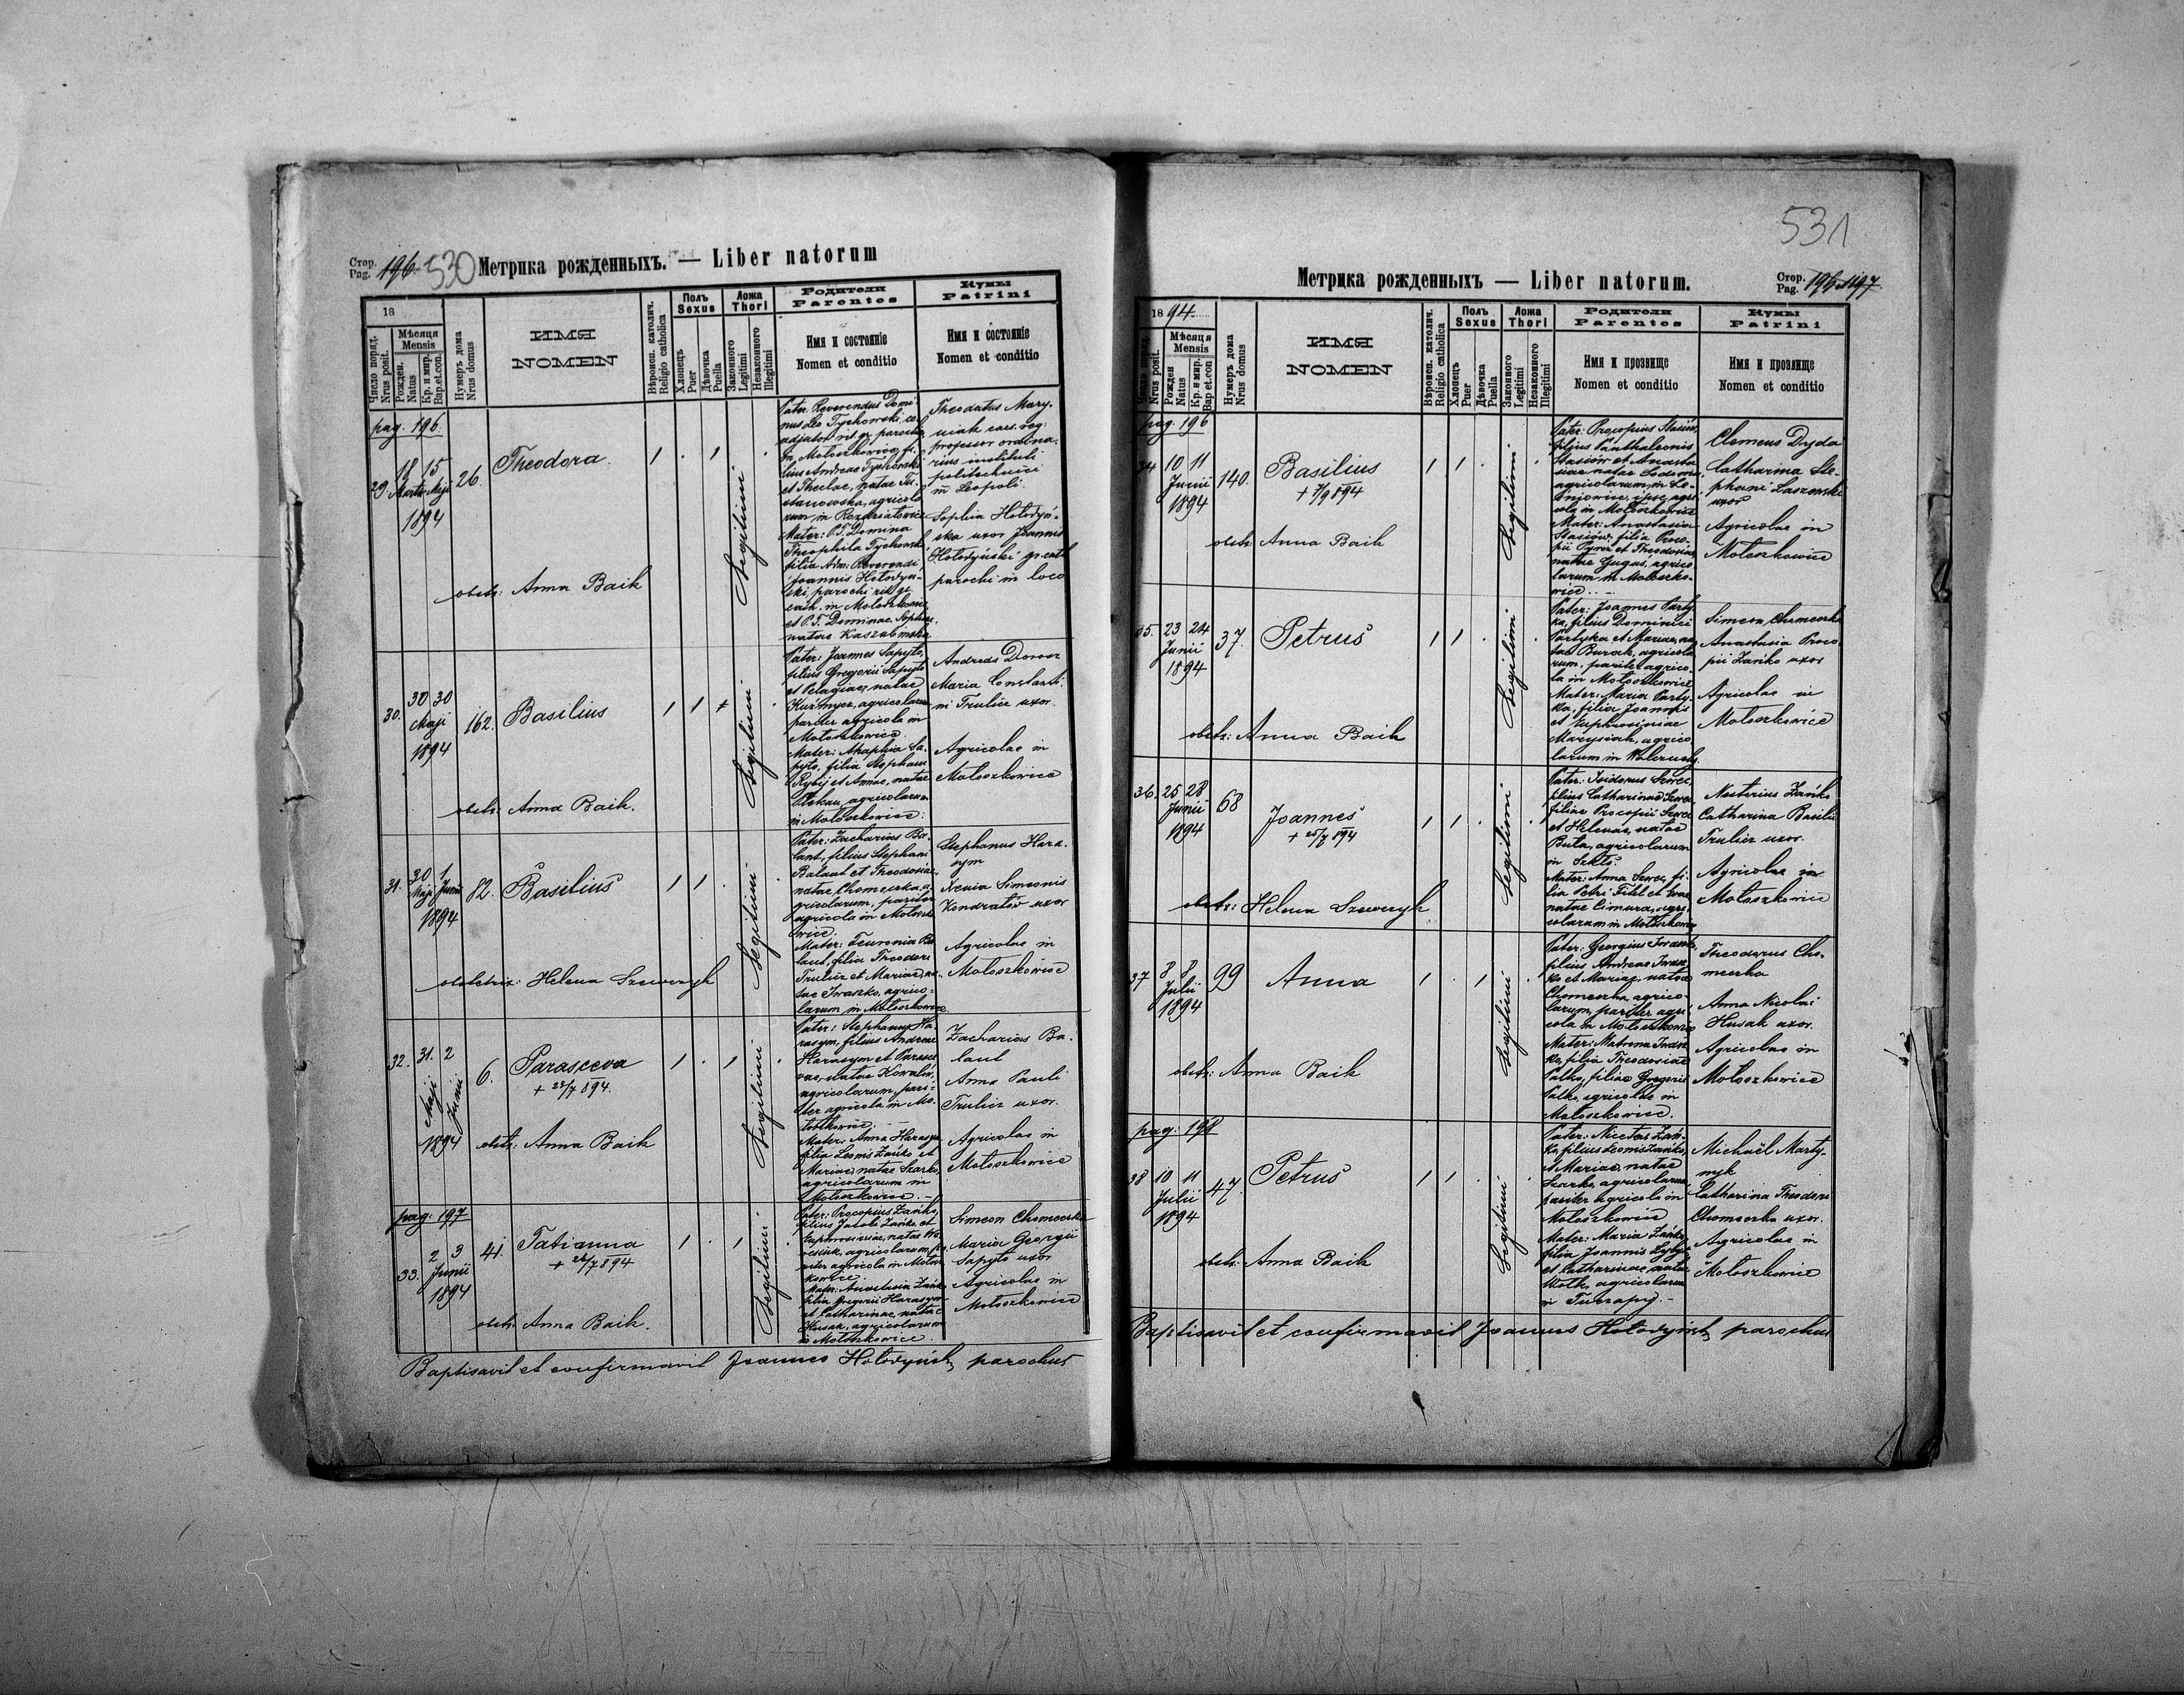 Стор.
Pag. 196 530 Метрика рожденныхъ. — Liber natorum
18
Число поряд.
Nrus posit.
Мѣсяця
Mensis
Рожден.
Natus
Кр. и мир.
Bap.et.con.
Нумеръ дома
Nrus domus
ИМЯ
NOMEN
Вѣроисп. католич.
Religio catholica
Полъ
Sexus
Хлопецъ
Puer
Дѣвочка
Puella
Ложа
Thori
Законного
Legitimi
Незаконного
Illegitimi
Родители
Parentes
Имя и состояніе
Nomen et conditio
Кумы
Patrini
Имя и состояніе
Nomen et conditio
pag. 196
29 18 15
Martii Maji
1894
26.
Theodora.
1 . 1 .
Legitimi
obstr: Anna Baik
Pater: Reverendus Domi-
nus Leo Tychowski, co-
adjutor rit. gr. parochus
in Mołoszkowice fi-
lius Andreae Tychowski
et Theclae, natae
agricola-
rum in
Mater: P.T. Domina
Theophila Tychowski
filia Adm: Reverendi
Joannis Hołodyń-
ski, parochi rit. gr.
cath. in Mołoszkowice
et P.T. Dominae Sophiae
natae Kaszubińska
Theodatus Mary-
niak caes. reg.
professor ordina-
rius instituti
politechnici
in Leopoli.
Sophia Hołodyń-
ska uxor Joannis
Hołodyński gr. cath
parochi in loco
30. 30 30
Maji
1894
162.
Basilius
1 1
Legitimi
obstr: Anna Baik.
Pater: Joannes Sapyto,
filius Gregorii Sapyto
et Pelagiae, natae
Kuzmycz, agricolarum
pariter agricola in
Mołoszkowice.
Mater: Ahaphia Sa-
pyto, filia Stephani
Rybij et Annae, natae
agricolarum
in Mołoszkowice.
Andreas
Maria Constanti-
ni Trulicz uxor.
Agricolae in
Mołoszkowice
31. 30 1
Maji Junii
1894
82.
Basilius
1 1 .
Legitimi
obstetrix: Helena Szewczyk
Pater: Zacharius Ba-
laut, filius Stephani
Balaut et Theodosiae,
natae Chomeczka, a-
gricolarum, pariter
agricola in Mołoszko-
wice.
Mater: Feuronia Ba-
laut, filia Theodori
Trulicz et Mariae, na-
tae Iwaszko, agrico-
larum in Mołoszkowice.
Stephanus Hara-
sym
Xenia Simeonis
Kondratów uxor
Agricolae in
Mołoszkowice
32. 31. 2
Maji Junii
1894
6.
Parasceva
+ 28/7 894.
1 . 1
Legitimi
obstr: Anna Baik
Pater: Stephanus Ha-
rasym, filius Andreae
Harasym et Parasce-
vae, natae Kowalów,
agricolarum, pari-
ter agricola in Mo-
łoszkowice.
Mater: Anna Harasym
filia Leonis Zańko et
Mariae, natae Szarko,
agricolarum in
Mołoszkowice.
Zacharias Ba-
laut
Anna Pauli
Trulicz uxor.
Agricolae in
Mołoszkowice
pag: 197
33. 2 3
Junii
1894
41.
Tatianna
+ 26/7 894
1 . 1
Legitimi
obstr: Anna Baik.
Pater: Procopius Zańko,
filius Jacobi Zańko et
Euphrosiniae, natae
agricolarum, pa-
riter agricola in Mołosz-
kowice.
Mater: Anastasia Zańko
filia Gregorii Harasym
et Catharinae, natae
Husak, agricolarum
in Mołoszkowice.
Simeon Chomeczka
Maria Georgii
Sapyto uxor
Agricolae in
Mołoszkowice
Baptisavit et confirmavit Joannes Hołodyński parochus
531
Метрика рожденныхъ — Liber natorum.
Стор.
Pag. 196 et 197
1894
Число поряд.
Nrus posit.
Мѣсяця
Mensis
Рожден
Natus
Кр. и мир.
Bap et.con
Нумеръ дома
Nrus domus
ИМЯ
NOMEN
Вѣроисп. католич.
Religio catholica
Полъ
Sexus
Хлопецъ
Puer
Дѣвочка
Puella
Ложа
Thori
Законного
Legitimi
Незаконного
Illegitimi
Родители
Parentes
Имя и прозвище
Nomen et conditio
Кумы
Patrini
Имя и прозвище
Nomen et conditio
pag. 196
34 10 11
Junii
1894
140.
Basilius
+ 7/9 894
1 1
Legitimi
obstr: Anna Baik
Pater: Procopius Stasiów,
filius Panthaleonis
Stasiów et Anasta-
siae, natae
agricolarum in
ipse agri-
cola in Mołoszkowice
Mater: Anastasia
Stasiów, filia Proco-
pii et Theodosiae
natae Gugus, agrico-
larum in Mołoszko-
wice.
Clemens Dyda
Catharina Ste-
phani Laszowski
uxor
Agricolae in
Mołoszkowice
35. 23 24
Junii
1894
37.
Petrus
1 1
Legitimi
obstr: Anna Baik
Pater: Joannes Party-
ka, filius Dominici
Partyka et Mariae, na-
tae Burak, agricola-
rum, pariter agrico-
la in Mołoszkowice
Mater: Maria Party-
ka, filia Joannis
et Euphrosiniae
Marysiak, agrico-
larum in
Simeon Chomeczka
Anastasia Proco-
pii Zańko uxor
Agricolae in
Mołoszkowice
36. 25 28
Junii
1894
68
Joannes
+ 25/7 894
1 1
Legitimi
obstr: Helena Szewczyk
Pater: Isidorus Szewc,
filius Catharinae Szewc
filiae Procopii Szewc
et Helenae, natae
Buta, agricolarum
in Szkło.
Mater: Anna Szewc, fi-
lia Petri et Evae
natae Cimura, agri-
colarum in Mołoszkowice
Nestorius Zańko
Catharina Basilii
Trulicz uxor.
Agricolae in
Mołoszkowice
37 8 8
Julii
1894
99
Anna
1 . 1
Legitimi
obstr: Anna Baik
Pater: Georgius Iwaszko,
filius Andreae Iwasz-
ko et Mariae, natae
Chomeczka, agrico-
larum, pariter agri-
cola in Mołoszkowice
Mater: Matrona Iwasz-
ko, filia Theodosiae
Palko, filiae Gregorii
Palko, agricolae in
Mołoszkowice.
Theodorus Cho-
meczka
Anna Nicolai
Husak uxor.
Agricolae in
Mołoszkowice
pag: 198
38 10 11
Julii
1894
47.
Petrus
1 1
Legitimi
obstr: Anna Baik
Pater: Nicetas Zań-
ko, filius Leonis Zańko,
et Mariae, natae
Szarko, agricolarum,
pariter agricola in
Mołoszkowice
Mater: Maria Zańko,
filia Joannis
et Catharinae, natae
agricolarum
in
Michaël Marty-
nyk
Catharina Theodori
Chomeczka uxor.
Agricolae in
Mołoszkowice
Baptisavit et confirmavit Joannes Hołodyński parochus